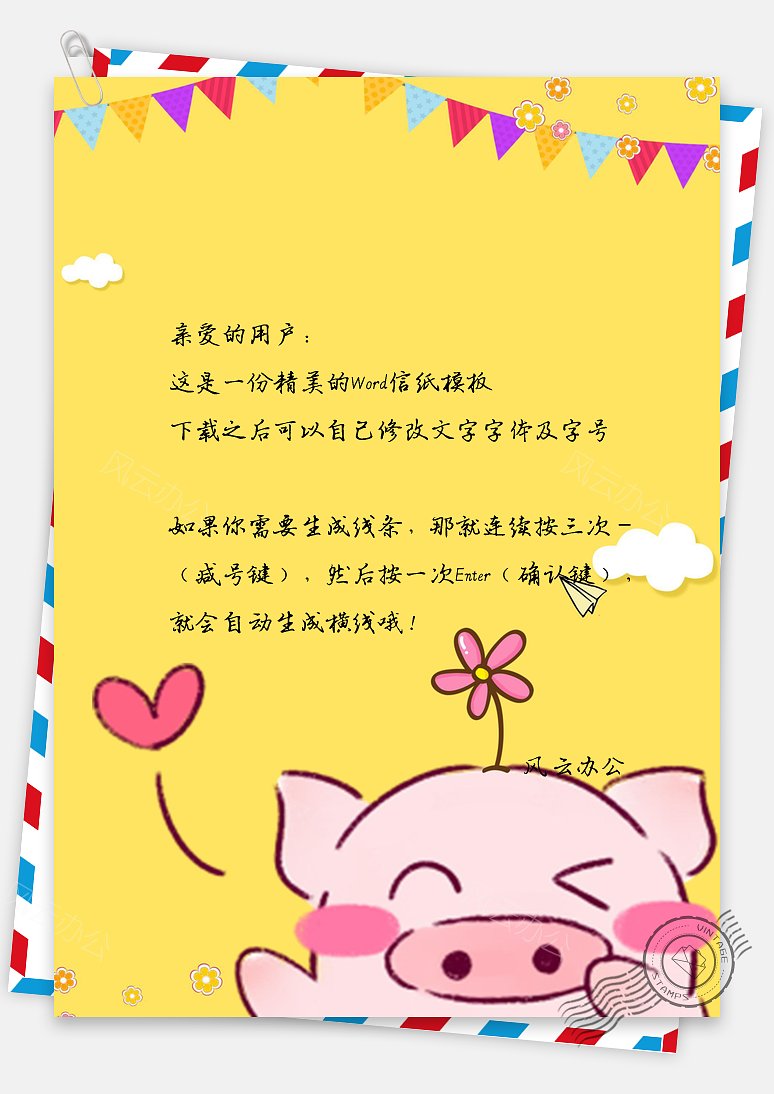 亲爱的用户：
这是一份精美的Word信纸模板
下载之后可以自己修改文字字体及字号
如果你需要生成线条，那就连续按三次-
（减号键），然后按一次Enter（确认键），
就会自动生成横线哦！
风云办公
风云办公
风云办公
风云办公
风云办公
VINTAGE
STAMPS